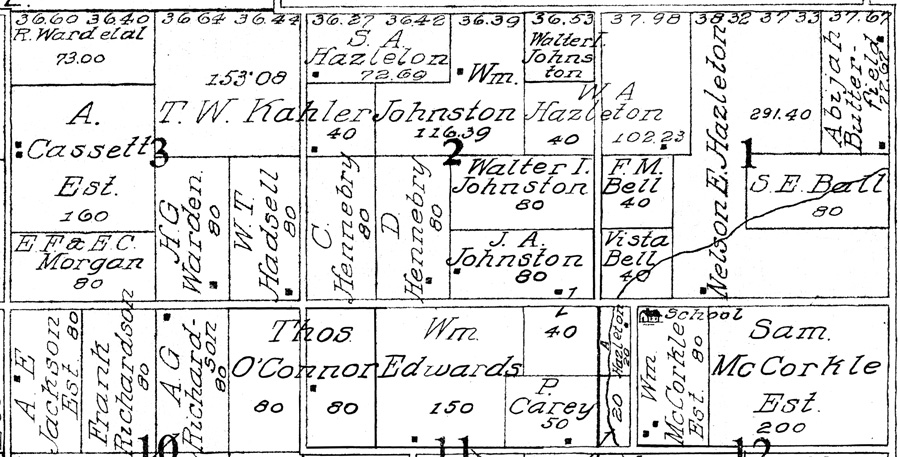 36.60 36.40 36.64 36.44 36.27 36.42 36.39 36.53 37.98 38 32 37 33 37.67
R. Wardelal
73.00
153.08
T. W. Kahler
A.
Cassett
Est.
160
3
E. F. & E. C.
Morgan
80
H G
Warden
80
W. T.
Hadsell
80
S. A.
Hazleton
72.69
40
Wm.
Johnston
116.39
2
Walter I.
Johns
ton
W A
Hazleton
40
102.23
C.
Hennebry
80
D
Hennebry
80
Walter I.
Johnston
80
J. A.
Johnston
80
1
F. M.
Bell
40
Vista
Bell
40
Nelson E. Hazleton
291.40
1
Abijah
Butter-
field
S. E. Ball
80
A E
Jackson
Est
80
Frank
Richardson
80
A G
Richard-
son
80
10
Thos.
O'Connor
80
80
Wm.
Edwards
150
11
40
P.
Carey
50
Hazleton
20
School
Wm
McCorkle
Est.
80
Sam.
McCorkle
Est.
200
12